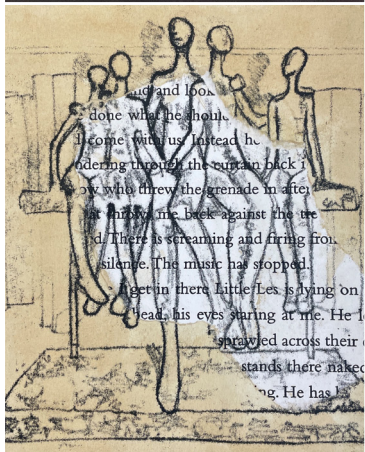 and look
done what he shoul
come with us. Instead he
dering through the curtain back i
ow who threw the grenade in after
at throws me back against the tre
d. There is screaming and firing from
silence. The music has stopped.
get in there Little Les is lying on
head, his eyes staring at me. He l
sprawled across their
stands there naked
ng. He has